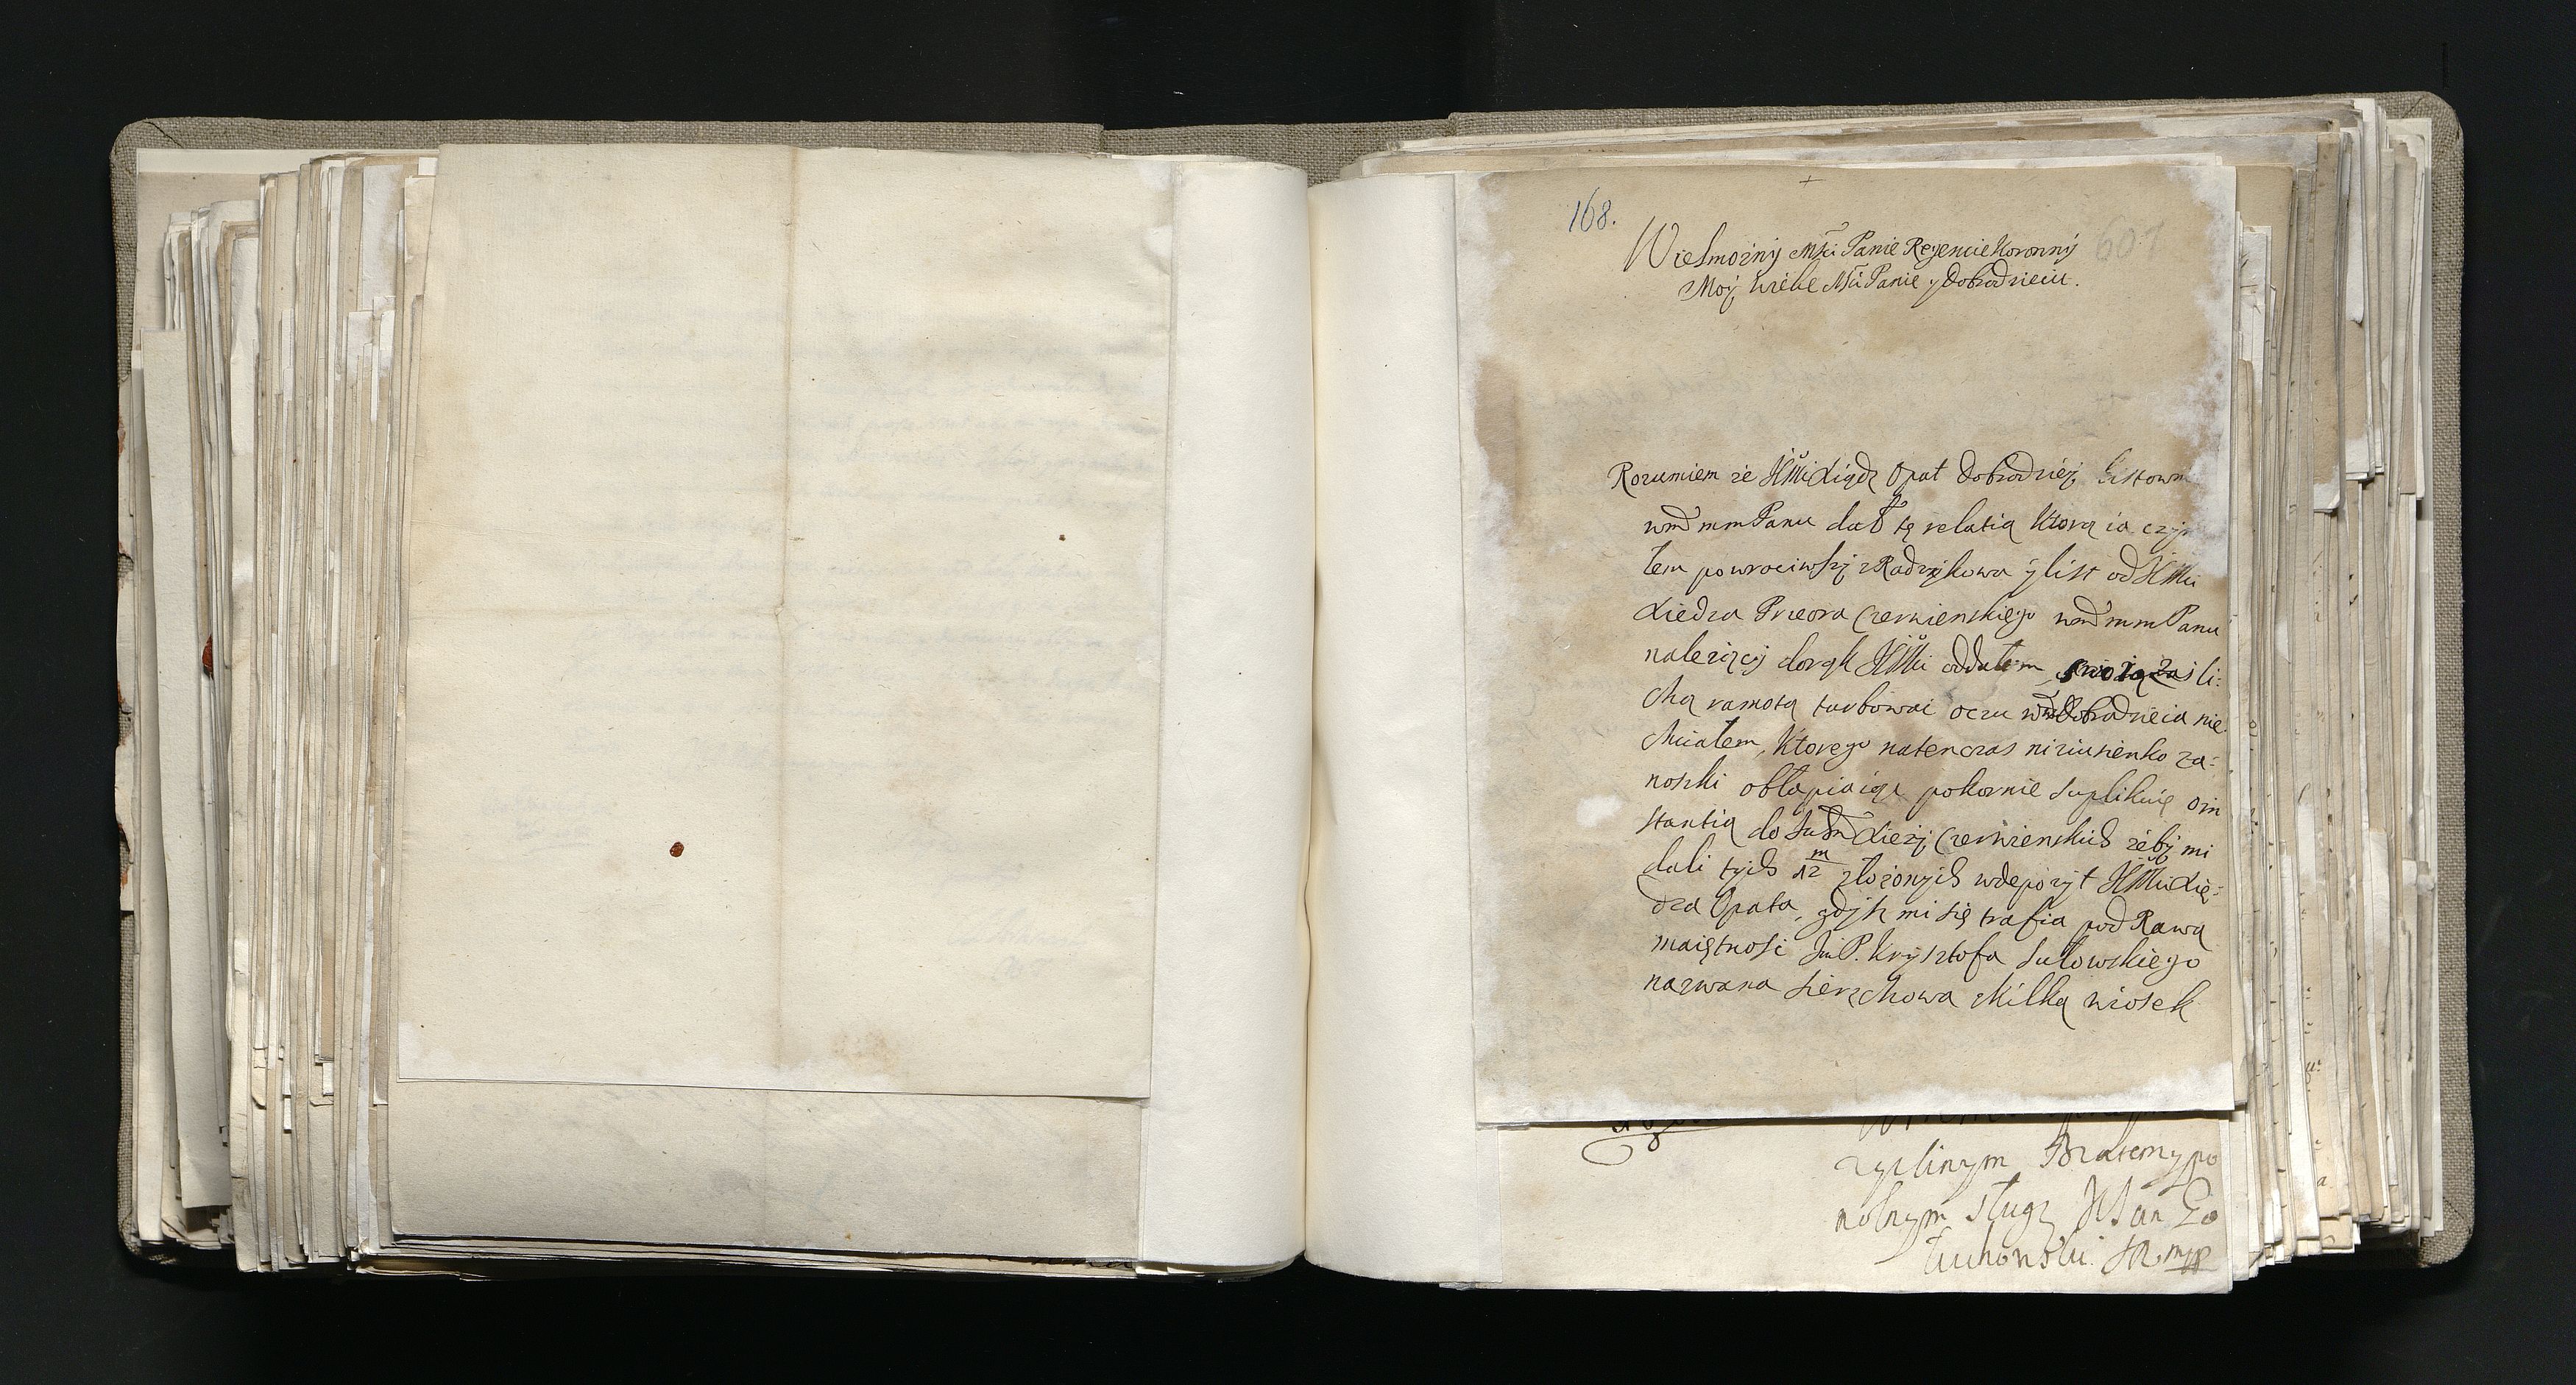 168.
607
Wielmożny Msći Panie Regencie Koronny
Moy wielce Msći Panie y Dobrodzieiu.
Rozumiem że JEMći Xiądz Opat Dobrodziey listown
wmd mm Panu dał tę relatią ktorą ia czy
łem powrociwszy z Radzykowa y list od JEMći
Xiedza Przeora Czerwienskiego wmd mm Panu
należący do rąk JEMći oddałem, swoią zas li:
chą ramotą turbować oczu wmd Dobrodzieia nie
chciałem, ktorego natenczas niziusienko za:
noszki obłapiaiąc pokornie suplikuię o in
stantią do Xięży Czerwienskich żeby mi
dali tych 12 m złożonych w depozyt JEMći Xię:
dza Opata, gdysz mi się trafia pod Rawą
maiętnosc Jm P. Krysztofa Sułowskiego
nazwana Sierzchowa z kilką wiosek
zyczliwym Bratem y po
wolnym sługą Jan Zo
mpp